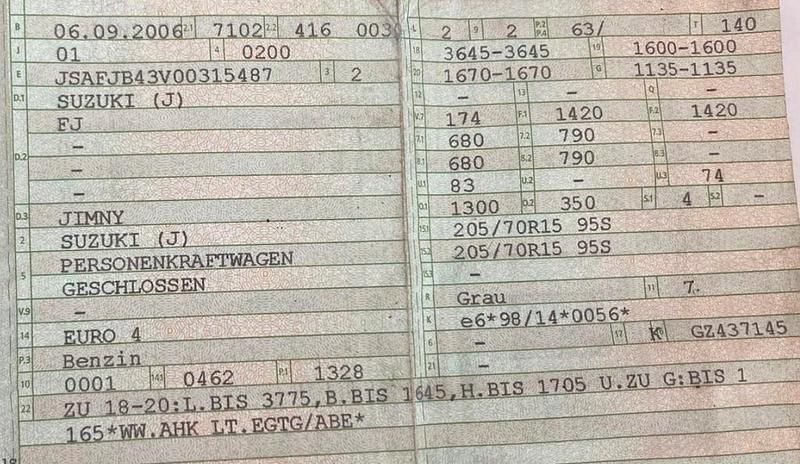 B 06.09.2006 2.1 7102 2.2 416 003
J 01 4 0200
E JSAFJB43V00315487 3 2
D.1 SUZUKI (J)
FJ
–
D.2 –
–
D.3 JIMNY
2 SUZUKI (J)
PERSONENKRAFTWAGEN
5 GESCHLOSSEN
V.9 –
14 EURO 4
P.3 Benzin
10 0001 14.1 0462 P.1 1328
L 2 9 2 P.2 P.4 63/ T 140
18 3645-3645 19 1600-1600
20 1670-1670 G 1135-1135
12 – 13 – Q –
V.7 174 F.1 1420 F.2 1420
7.1 680 7.2 790 7.3 –
8.1 680 8.2 790 8.3 –
U.1 83 U.2 – U.3 74
O.1 1300 O.2 350 S.1 4 S.2 –
15.1 205/70R15 95S
15.2 205/70R15 95S
15.3 –
R Grau 11 7
K e6*98/14*0056*
6 – 17 K 16 GZ437145
21 –
22 ZU 18-20:L.BIS 3775,B.BIS 1645,H.BIS 1705 U.ZU G:BIS 1
165*WW.AHK LT.EGTG/ABE*